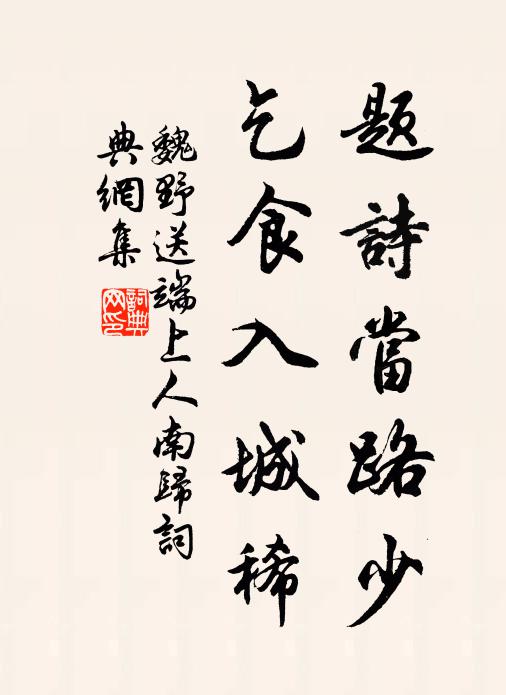 題詩當路少
乞食入城稀
魏野送端上人南歸詞
典網集
詞典
网印